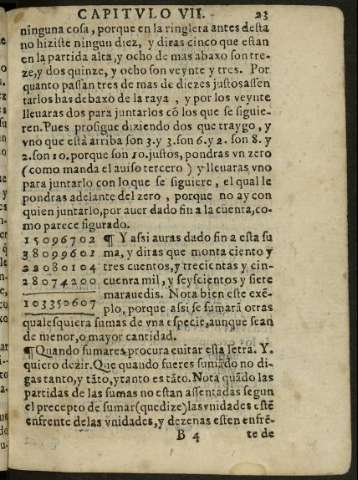 CAPITVLO VII. 23
ninguna cosa, porque en la ringlera antes desta
no hiziste ningun diez, y diras cinco que estan
en la partida alta, y ocho de mas abaxo son tre-
ze, y dos quinze, y ocho son veynte y tres. Por
quanto passan tres de mas de diezes justos assen
tarlos has debaxo de la raya, y por los veynte
lleuaras dos para juntarlos cõ los que se siguie-
ren. Pues prosigue diziendo dos que traygo, y
vno que està arriba son 3. y 3. son 6. y 2. son 8. y
2. son 10. porque son 10. justos, pondras vn zero
(como manda el auiso tercero) y lleuaras vno
para juntarlo con lo que se siguiere, el qual le
pondras adelante del zero, porque no ay con
quien juntarlo, por auer dado fin a la cuenta, co-
mo parece figurado.
15096702 ¶ Y assi auras dado fin a esta su
38099601 ma, y diras que monta ciento y
22080104 tres cuentos, y trecientas y cin-
28074200 cuenta mil, y seyscientos y siete
marauedis. Nota bien este exẽ-
103350607 plo, porque assi se sumarà otras
qualesquiera sumas de vna especie, aunque sean
de menor, o mayor cantidad.
¶ Quando sumares procura euitar esta letra. Y.
quiero dezir. Que quando fueres sumãdo no di-
gas tanto, y tãto, y tanto es tãto. Nota quãdo las
partidas de las sumas no estan assentadas segun
el precepto de sumar (que dize) las vnidades estẽ
enfrente de las vnidades, y dezenas esten enfrẽ-
B 4 te de